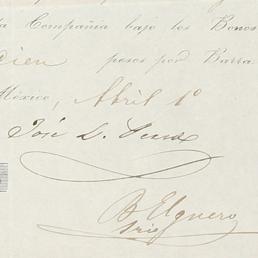 a Compañia bajo los Bonos
cien pesos por Barra
México, Abril 1º
José L.
B. Elguero
Srio